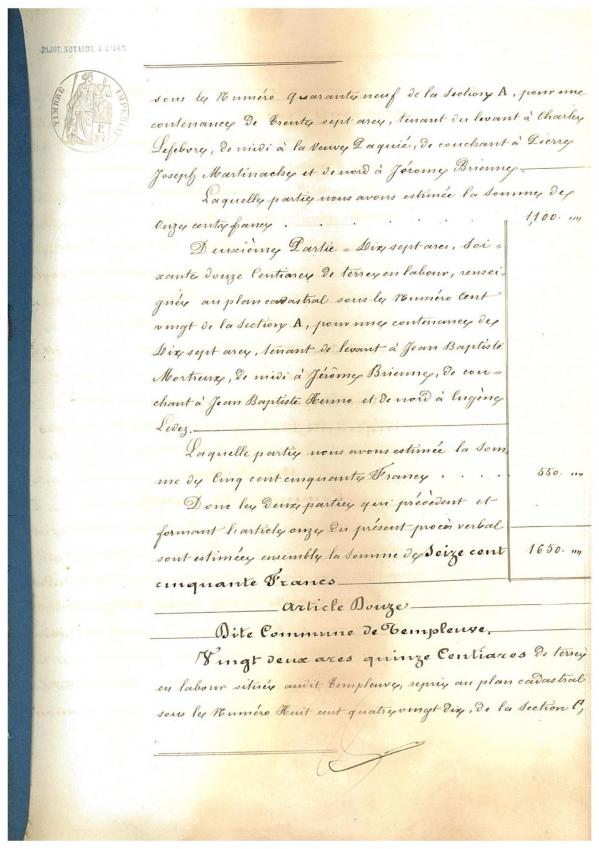 PAJOT, NOTAIRE A LILLE
TIMBRE IMPERIAL
sous le Numéro quarante neuf de la section A, pour une
contenance de trente sept ares, tenant du levant à Charles
Lefebvre, de midi à la Veuve Paquié, de couchant à Pierre
Joseph Martinache et de nord à Jérôme Brienne.
Laquelle partie nous avons estimée la somme de
onze cents francs . . . . . . 1,100. "
Deuxième Partie = Dix sept ares, soi-
xante douze Centiares de terre en labour, rensei-
gnée au plan cadastral sous le Numéro Cent
vingt de la section A, pour une contenance de
Dix sept ares, tenant de levant à Jean Baptiste
de midi à Jérôme Brienne, de cou-
chant à Jean Baptiste et de nord à Eugène
Ledez.
Laquelle partie nous avons estimée la som
me de Cinq cent cinquante Francs . . . . 550. "
Donc les deux parties qui précèdent et
formant l'article onze du présent procès verbal
sont estimées ensemble la somme de Seize cent 1650. "
cinquante Francs
Article Douze
Dite Commune de Templeuve.
Vingt deux ares quinze Centiares de terre
en labour située audit Templeuve, repris au plan cadastral
sous le Numéro Huit cent quatre vingt dix, de la section C,